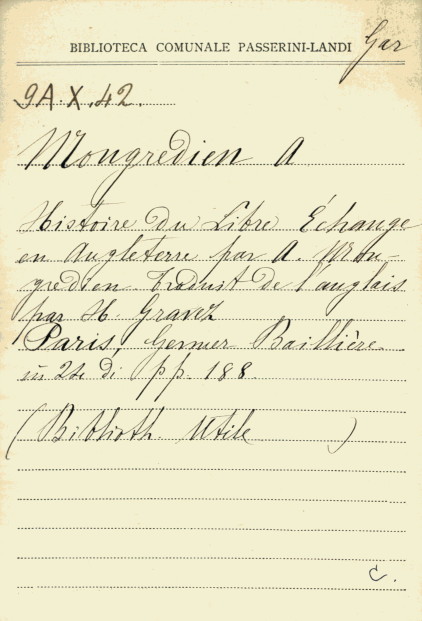 BIBLIOTECA COMUNALE PASSERINI-LANDI Gar
9A.X.42.
Mongredien A
Histoire du Libre Échange
en Angleterre par A. Mon-
gredien traduit de l'anglais
par H. Gravez
Paris, Germer Baillière
in 24e di pp. 188
(Biblioth. Utile)
C.